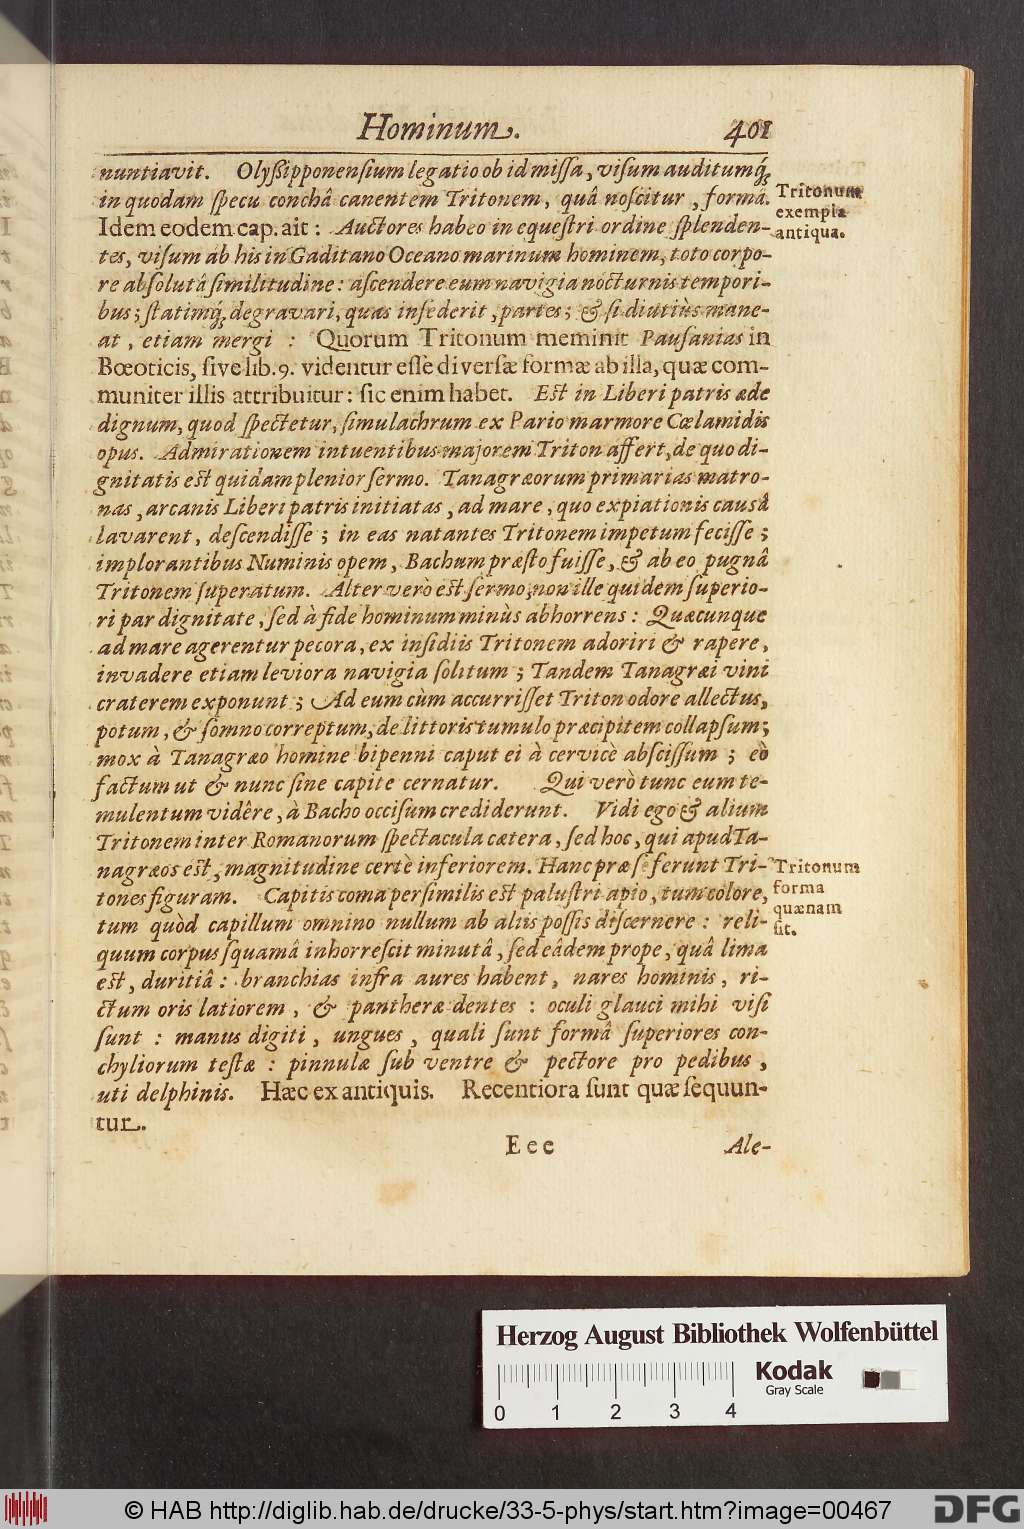 Hominum. 401
nuntiavit. Olyßipponensium legatio ob id missa, visum auditumq́;
in quodam specu conchâ canentem Tritonem, quâ noscitur, formâ.
Tritonum
exempla
antiqua.
Idem eodem cap. ait: Auctores habeo in equestri ordine splenden-
tes, visum ab his in Gaditano Oceano marinum hominem, toto corpo-
re absolutâ similitudine: ascendere eum navigia nocturnis tempori-
bus; statimq́; degravari, quas insederit, partes; & si diutiùs mane-
at, etiam mergi: Quorum Tritonum meminit Pausanias in
Bœoticis, sive lib. 9. videntur esse diversæ formæ ab illa, quæ com-
muniter illis attribuitur: sic enim habet. Est in Liberi patris æde
dignum, quod spectetur, simulachrum ex Pario marmore Cœlamidis
opus. Admirationem intuentibus majorem Triton affert, de quo di-
gnitatis est quidam plenior sermo. Tanagræorum primarias matro-
nas, arcanis Liberi patris initiatas, ad mare, quo expiationis causâ
lavarent, descendisse; in eas natantes Tritonem impetum fecisse;
implorantibus Numinis opem, Bachum præsto fuisse, & ab eo pugnâ
Tritonem superatum. Alter verò est sermo, non ille quidem superio-
ri par dignitate, sed à fide hominum minùs abhorrens: Quæcunque
ad mare agerentur pecora, ex insidiis Tritonem adoriri & rapere,
invadere etiam leviora navigia solitum; Tandem Tanagræi vini
craterem exponunt; Ad eum cùm accurrisset Triton odore allectus,
potum, & somno correptum, de littoris tumulo præcipitem collapsum;
mox à Tanagræo homine bipenni caput ei à cervicè abscissum; eò
factum ut & nunc sine capite cernatur. Qui verò tunc eum te-
mulentum vidêre, à Bacho occisum crediderunt. Vidi ego & alium
Tritonem inter Romanorum spectacula cætera, sed hoc, qui apud Ta-
nagræos est, magnitudine certè inferiorem. Hanc præ se ferunt Tri-
tones figuram. Capitis coma persimilis est palustri apio, tum colore,
Tritonum
forma
quænam
sit.
tum quòd capillum omnino nullum ab aliis possis discernere: reli-
quum corpus squamâ inhorrescit minutâ, sed eâdem prope, quâ lima
est, duritiâ: branchias infra aures habent, nares hominis, ri-
ctum oris latiorem, & pantheræ dentes: oculi glauci mihi visi
sunt: manus digiti, ungues, quali sunt formâ superiores con-
chyliorum testæ: pinnulæ sub ventre & pectore pro pedibus,
uti delphinis. Hæc ex antiquis. Recentiora sunt quæ sequun-
tur.
Eee Ale-
Herzog August Bibliothek Wolfenbüttel
Kodak
Gray Scale
0 1 2 3 4
© HAB http://diglib.hab.de/drucke/33-5-phys/start.htm?image=00467
DFG